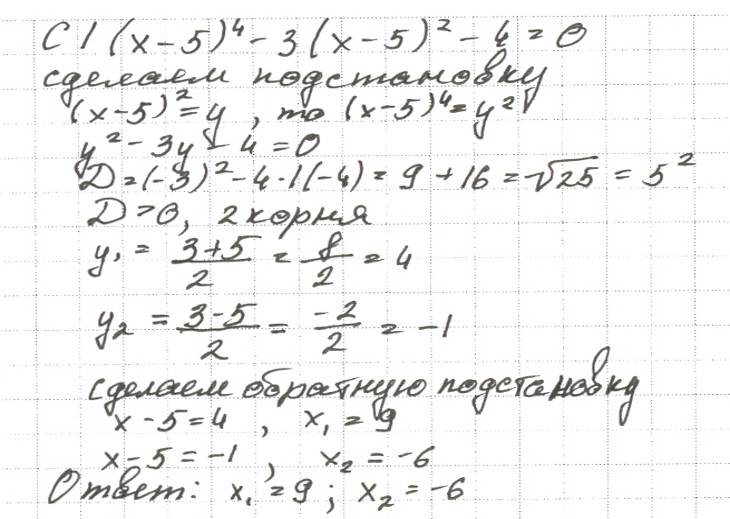 С1 (x-5)⁴ - 3(x-5)² - 4 = 0
сделаем подстановку
(x-5)² = y , то (x-5)⁴ = y²
y² - 3y - 4 = 0
D = (-3)² - 4·1(-4) = 9 + 16 = √25 = 5²
D > 0, 2 корня
y₁ = (3+5)/2 = 8/2 = 4
y₂ = (3-5)/2 = -2/2 = -1
сделаем обратную подстановку
x - 5 = 4 , x₁ = 9
x - 5 = -1 , x₂ = -6
Ответ: x₁ = 9 ; x₂ = -6